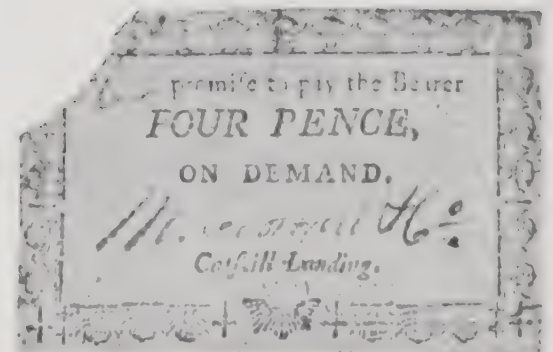 promiſe to pay the Bearer
FOUR PENCE,
ON DEMAND.
Catſkill Landing.